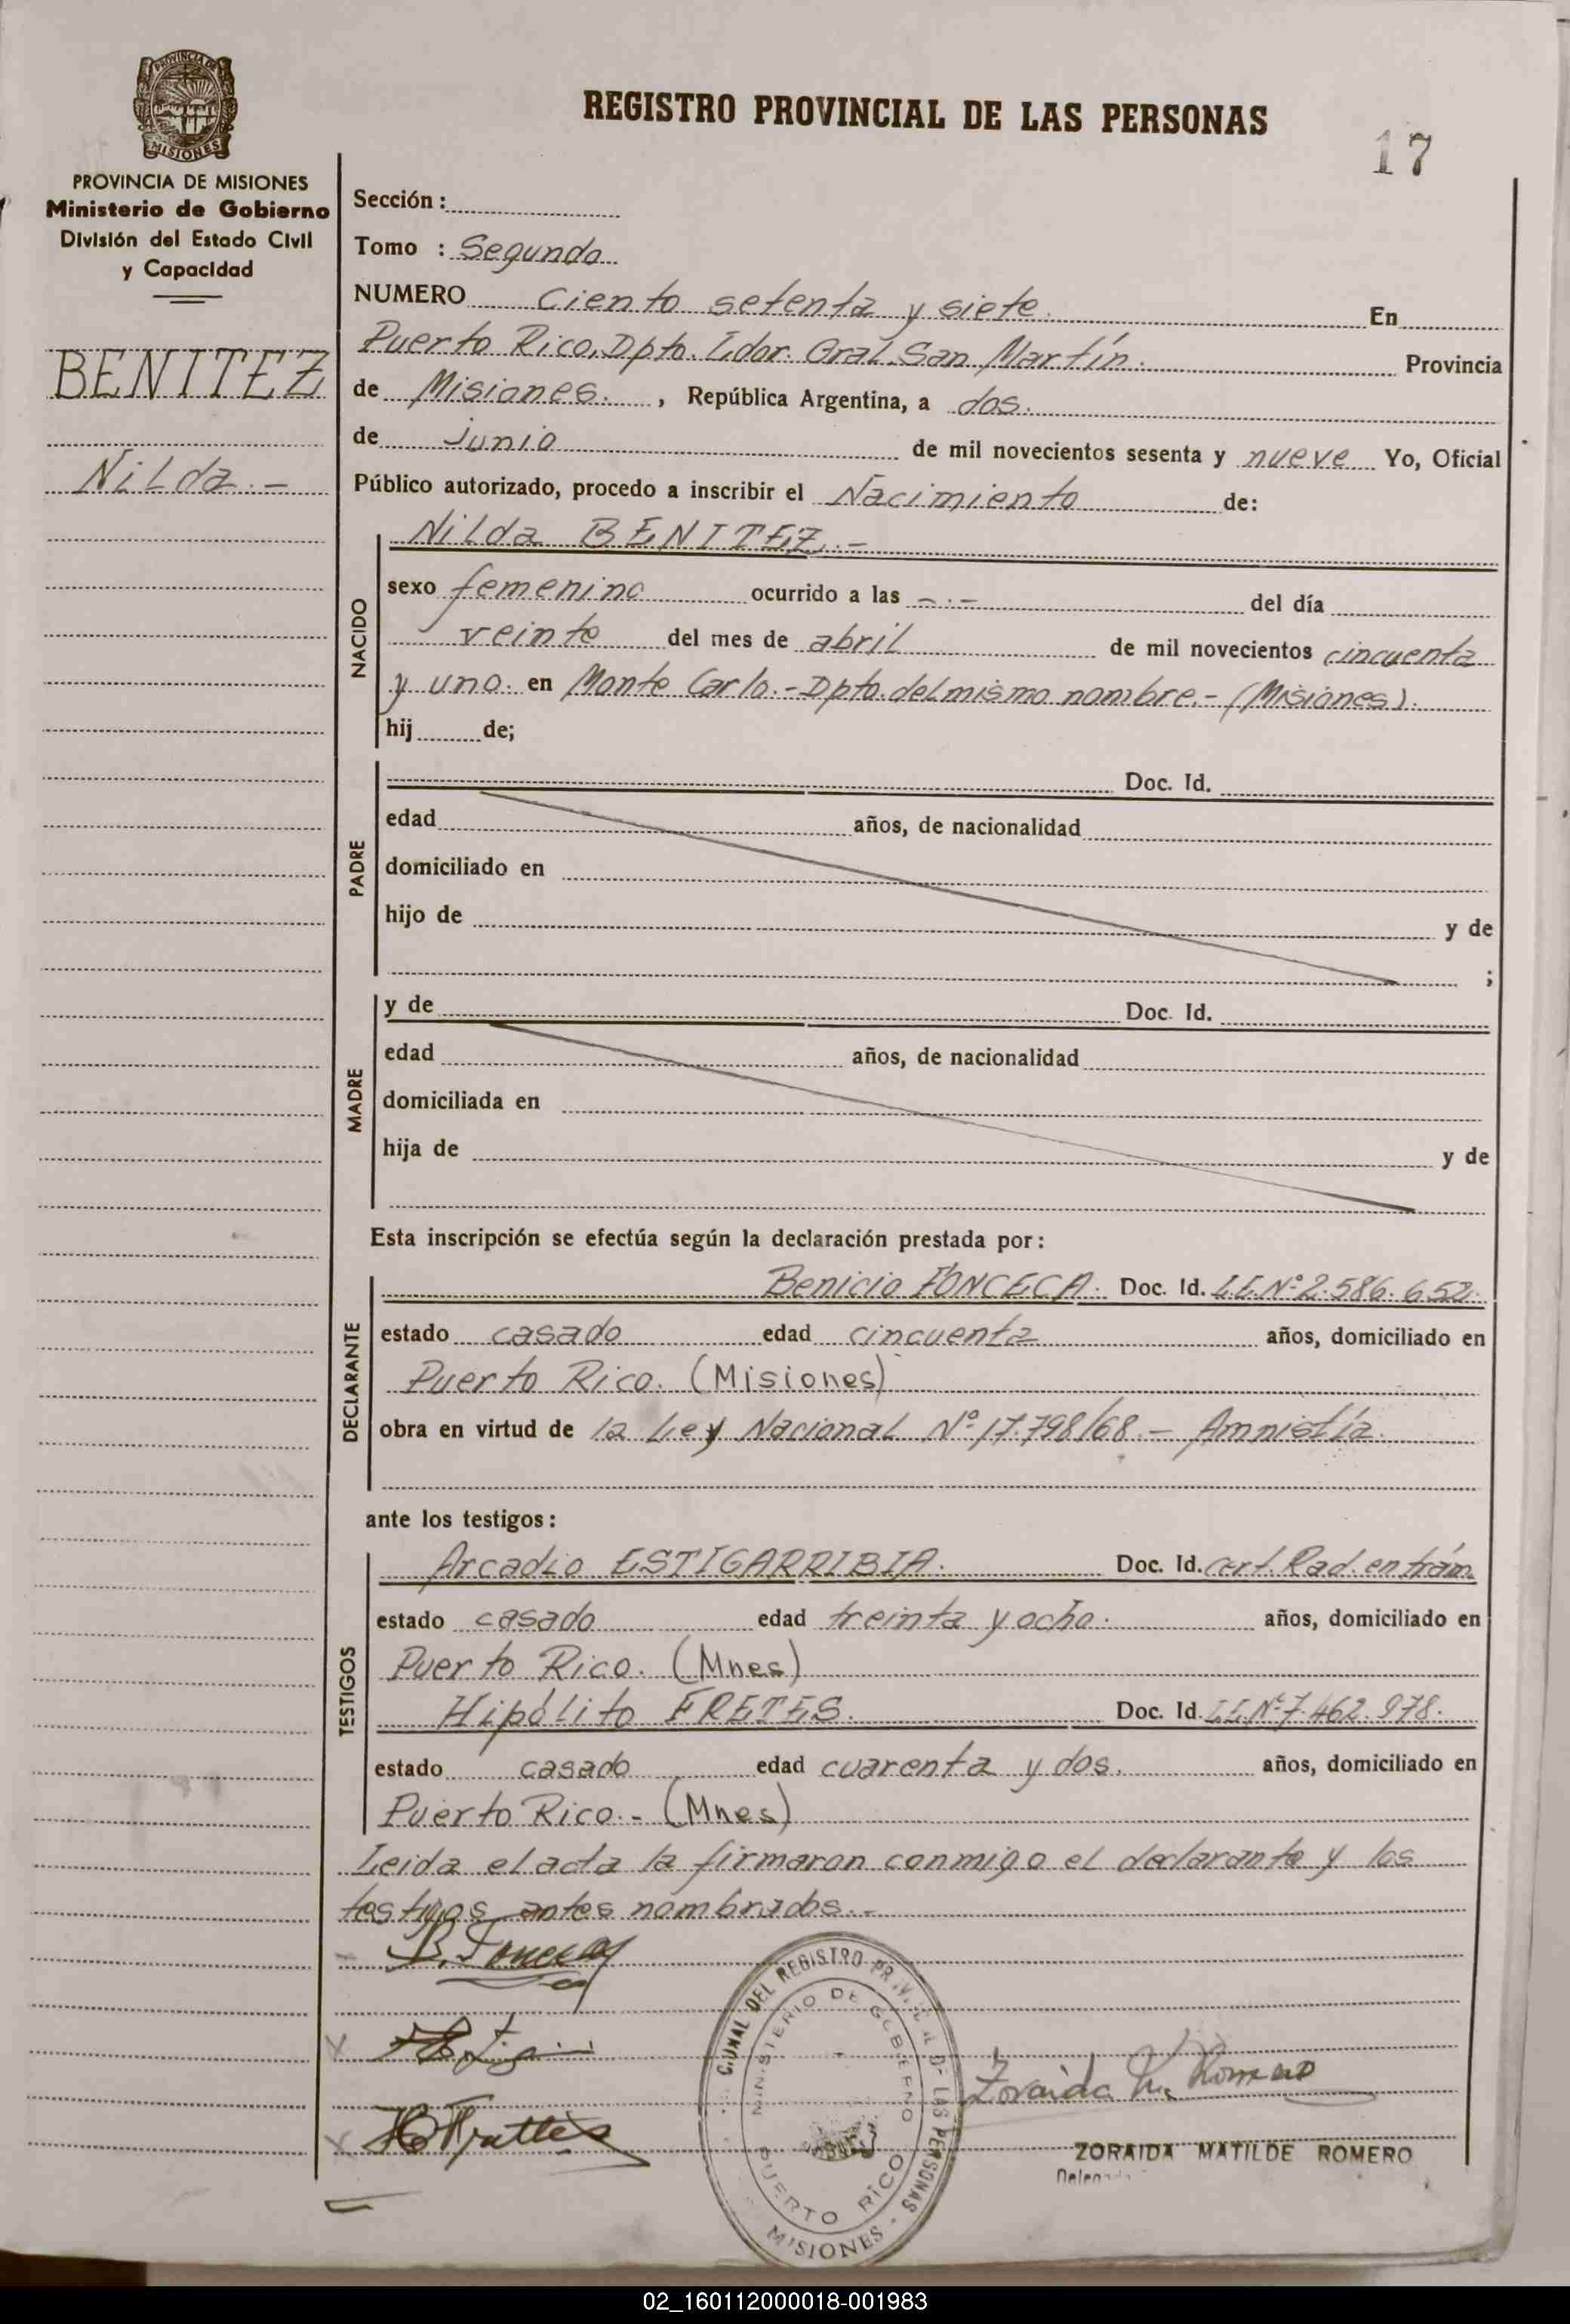 REGISTRO PROVINCIAL DE LAS PERSONAS
17
PROVINCIA DE MISIONES
Ministerio de Gobierno
División del Estado Civil
y Capacidad
BENITEZ
Nilda.-
Sección :
Tomo : Segundo
NUMERO Ciento setenta y siete. En
Puerto Rico, Dpto. Ldor. Gral. San Martín. Provincia
de Misiones. , República Argentina, a dos.
de junio de mil novecientos sesenta y nueve Yo, Oficial
Público autorizado, procedo a inscribir el Nacimiento de:
NACIDO
Nilda BENITEZ.-
sexo femenino ocurrido a las -.- del día
veinte del mes de abril de mil novecientos cincuenta
y uno. en Monte Carlo.-Dpto. del mismo nombre.-(Misiones).
hij de;
PADRE
Doc. Id.
edad años, de nacionalidad
domiciliado en
hijo de y de
;
MADRE
y de Doc. Id.
edad años, de nacionalidad
domiciliada en
hija de y de
Esta inscripción se efectúa según la declaración prestada por:
DECLARANTE
Benicio FONCECA. Doc. Id. L.E.Nº 2.586.652.
estado casado edad cincuenta años, domiciliado en
Puerto Rico. (Misiones)
obra en virtud de la Ley Nacional Nº 17.798/68.- Amnistía.
ante los testigos:
TESTIGOS
Arcadio ESTIGARRIBIA. Doc. Id. cert. Rad. en trám.
estado casado edad treinta y ocho. años, domiciliado en
Puerto Rico. (Mnes)
Hipólito FRETES. Doc. Id. L.E.Nº 7.462.978.
estado casado edad cuarenta y dos. años, domiciliado en
Puerto Rico.- (Mnes)
Leida el acta la firmaron conmigo el declarante y los
testigos antes nombrados.-
B. Fonceca
Zoraida M. Romero
ZORAIDA MATILDE ROMERO
DEL REGISTRO DE LAS PERSONAS - MISIONES
MINISTERIO DE GOBIERNO
PUERTO RICO
02_160112000018-001983